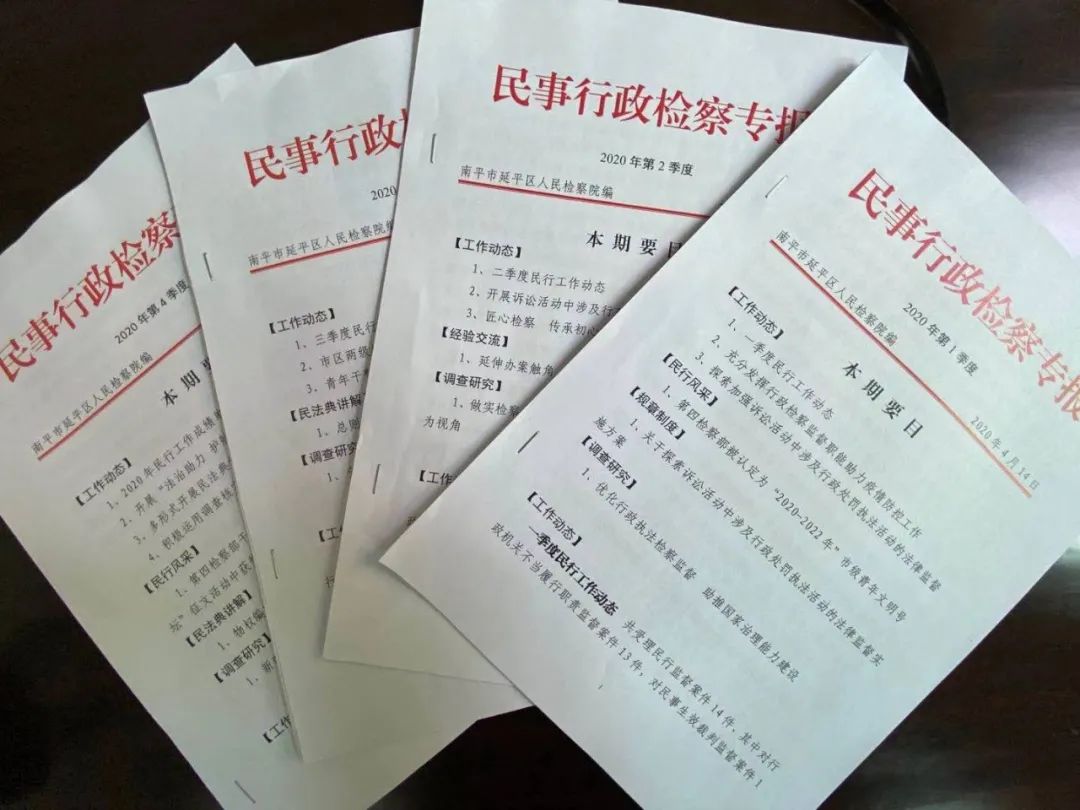 民事行政检察
2020年第4季度
市延平区人民检察院编
本期要
【工作动态】
1、2020年民行工作成绩
2、开展“法治助力
3、多形式开展民法典
4、积极运用调查核
【民行风采】
1、第四检察部干
坛”征文活动中获
【民法典讲解】
1、物权编
【调查研究】
1、新
【工作
民事行政
2020
南平市延平区人民检察院编
【工作动态】
1、三季度民行
2、市区两级
3、青年干
【民法典讲解
1、总则
【调查研究
1、
【工
民事行政检察专报
2020年第2季度
南平市延平区人民检察院编
本期要目
【工作动态】
1、二季度民行工作动态
2、开展诉讼活动中涉及行
3、匠心检察 传承初心
【经验交流】
1、延伸办案触角
【调查研究】
1、做实检察
为视角
【工作
民事行政检察专报
2020年第1季度
南平市延平区人民检察院编
2020年4月14日
本期要目
【工作动态】
1、一季度民行工作动态
2、充分发挥行政检察监督职能助力疫情防控工作
3、探索加强诉讼活动中涉及行政处罚执法活动的法律监督
【民行风采】
1、第四检察部被认定为“2020-2022年”市级青年文明号
【规章制度】
1、关于探索诉讼活动中涉及行政处罚执法活动的法律监督实
施方案
【调查研究】
1、优化行政执法检察监督 助推国家治理能力建设
【工作动态】
一季度民行工作动态 共受理民行监督案件14件，其中对行
政机关不当履行职责监督案件13件，对民事生效裁判监督案件1